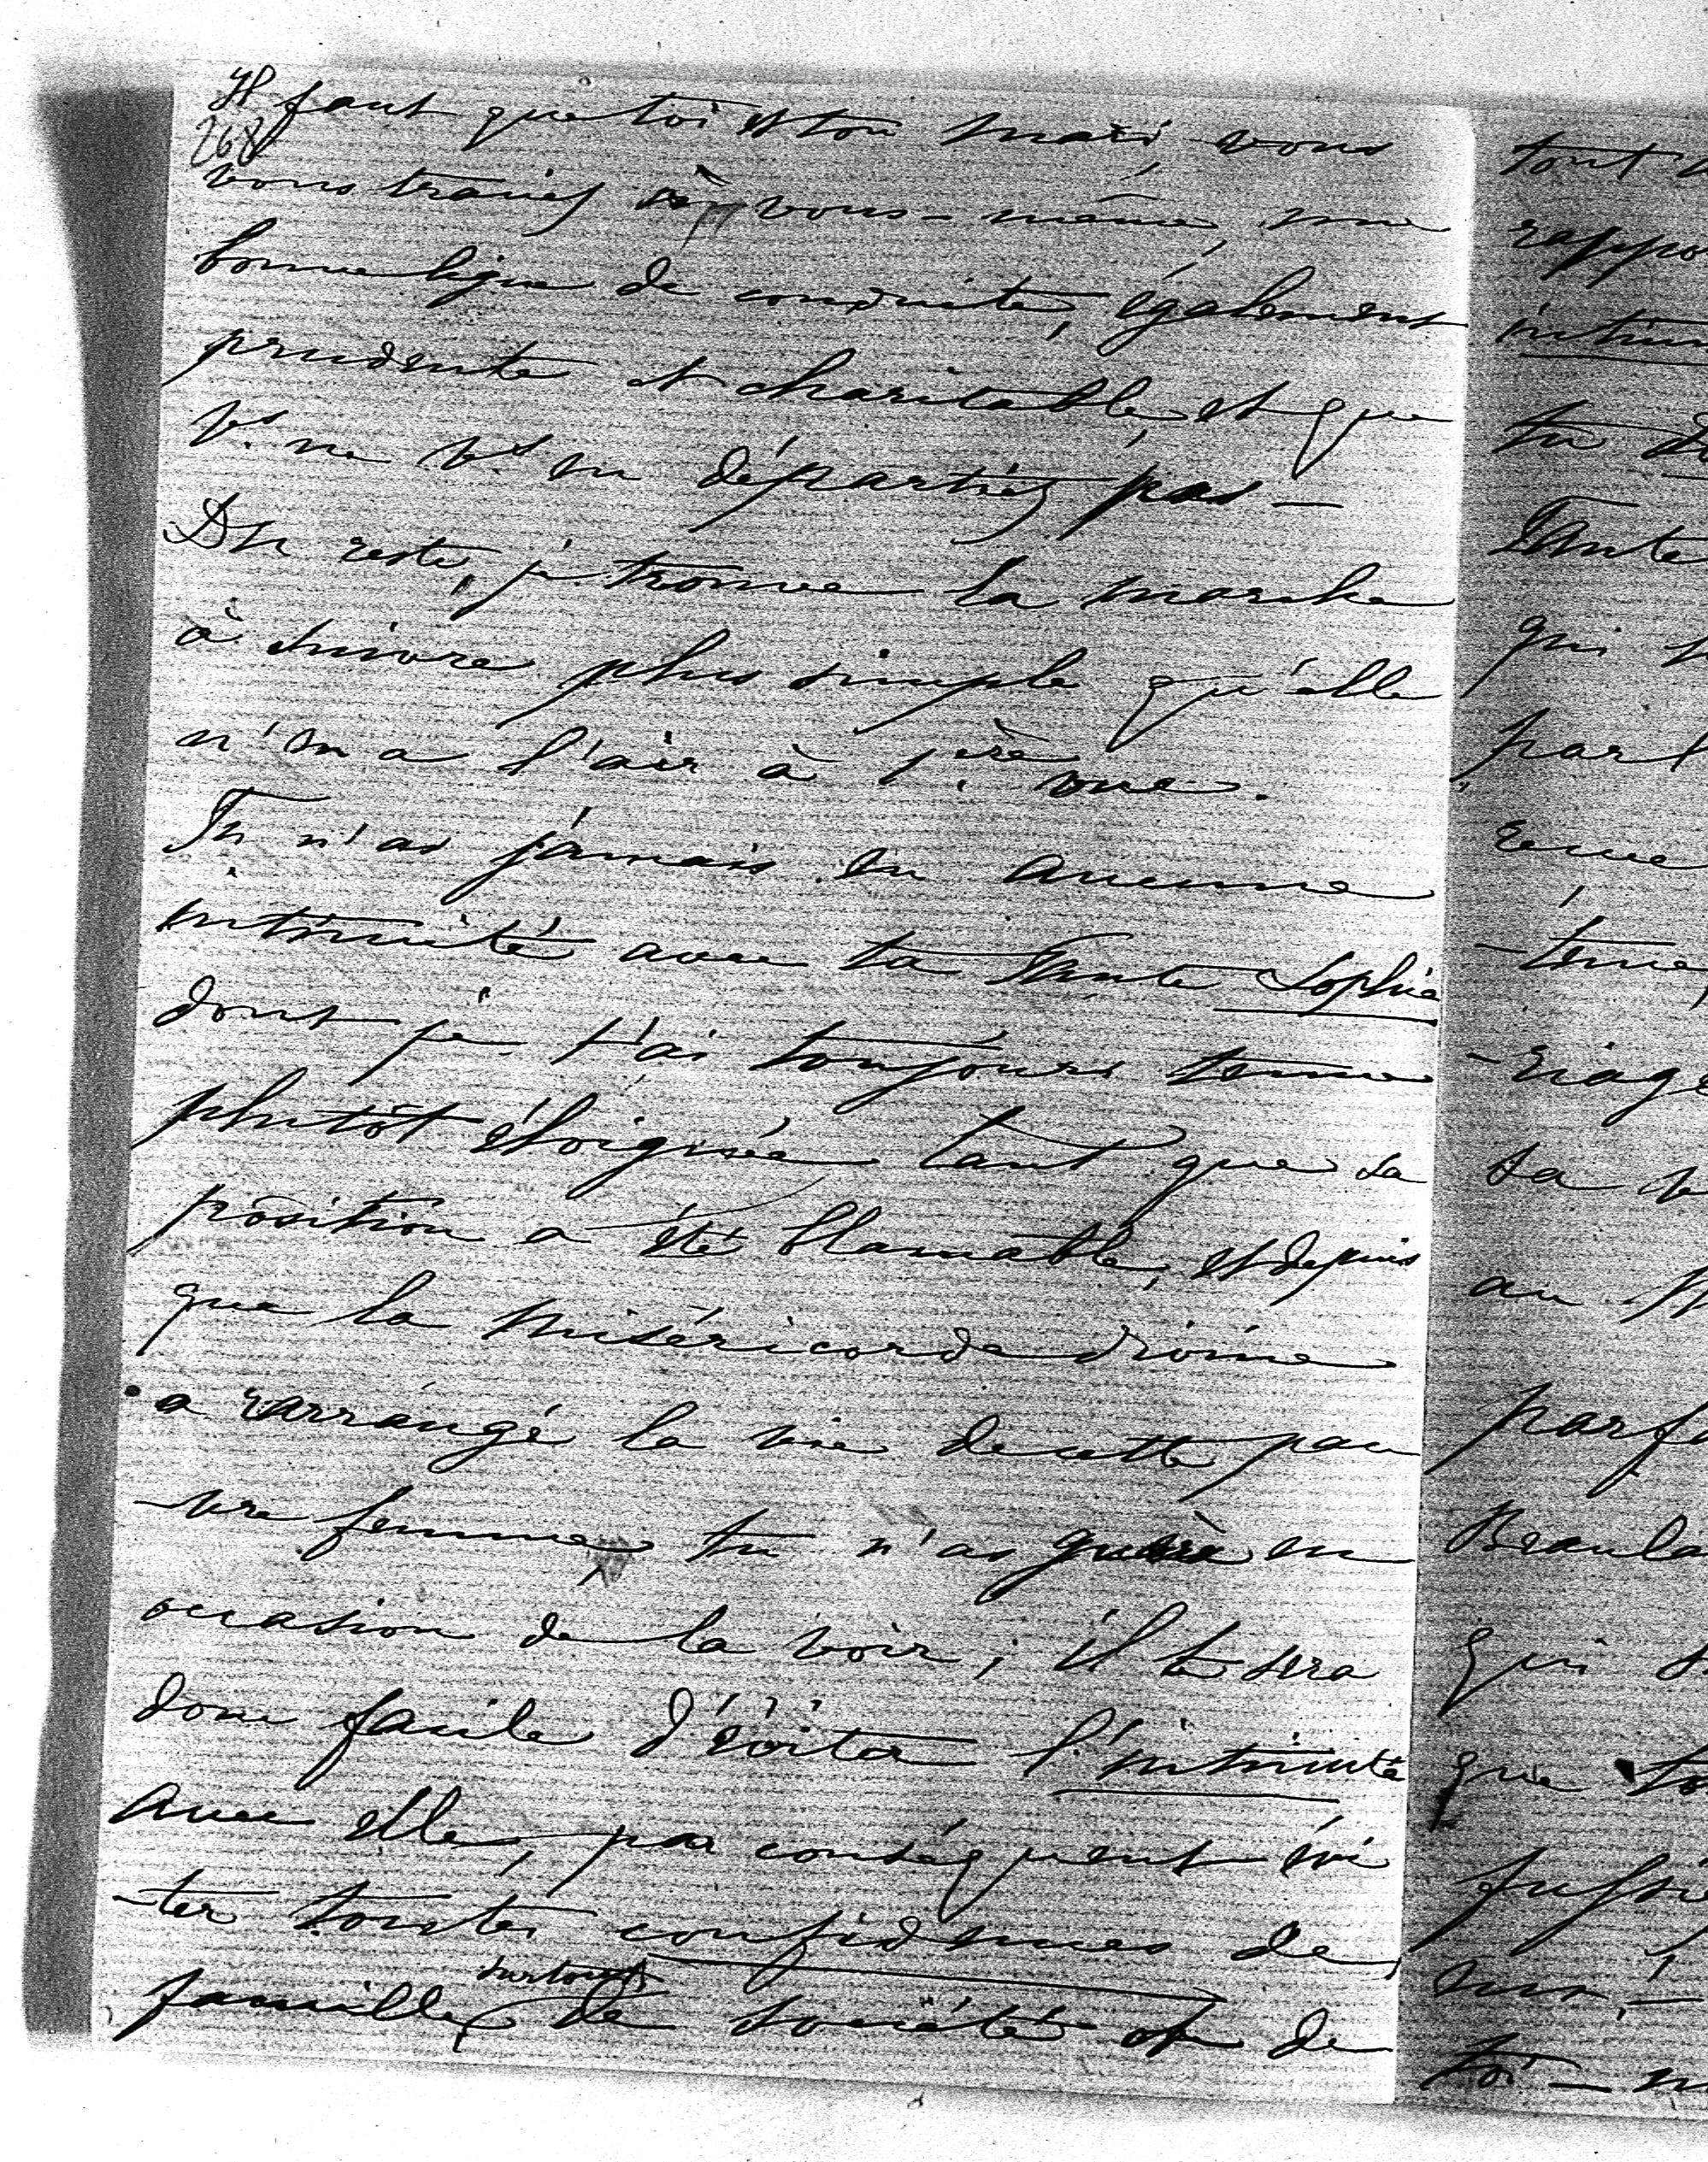 Il faut que toi et ton mari, vous
268
vous traciez à vous-même, une
bonne ligne de conduite, également
prudente et charitable, et que
vs ne vs en départiez pas —
Du reste, je trouve la marche
à suivre plus simple qu'elle
n'en a l'air à 1ère vue.
Tu n'as jamais eu aucune
intimité avec ta Tante Sophie
dont je t'ai toujours tenue
plutôt éloignée, tant que sa
position a été blamable, et depuis
que la miséricorde divine
a rarrangé la vie de cette pau
-vre femme, tu n'as guère eu
occasion de la voir ; il te sera
donc facile d'éviter l'intimité
avec elle, par conséquent évi
-ter toutes confidences de
surtout
famille, de société ou de
tout
rappo
intim
tu
Tante
qui
par l
-riage
sa v
au
parf
Beaula
qui
que
toi-m